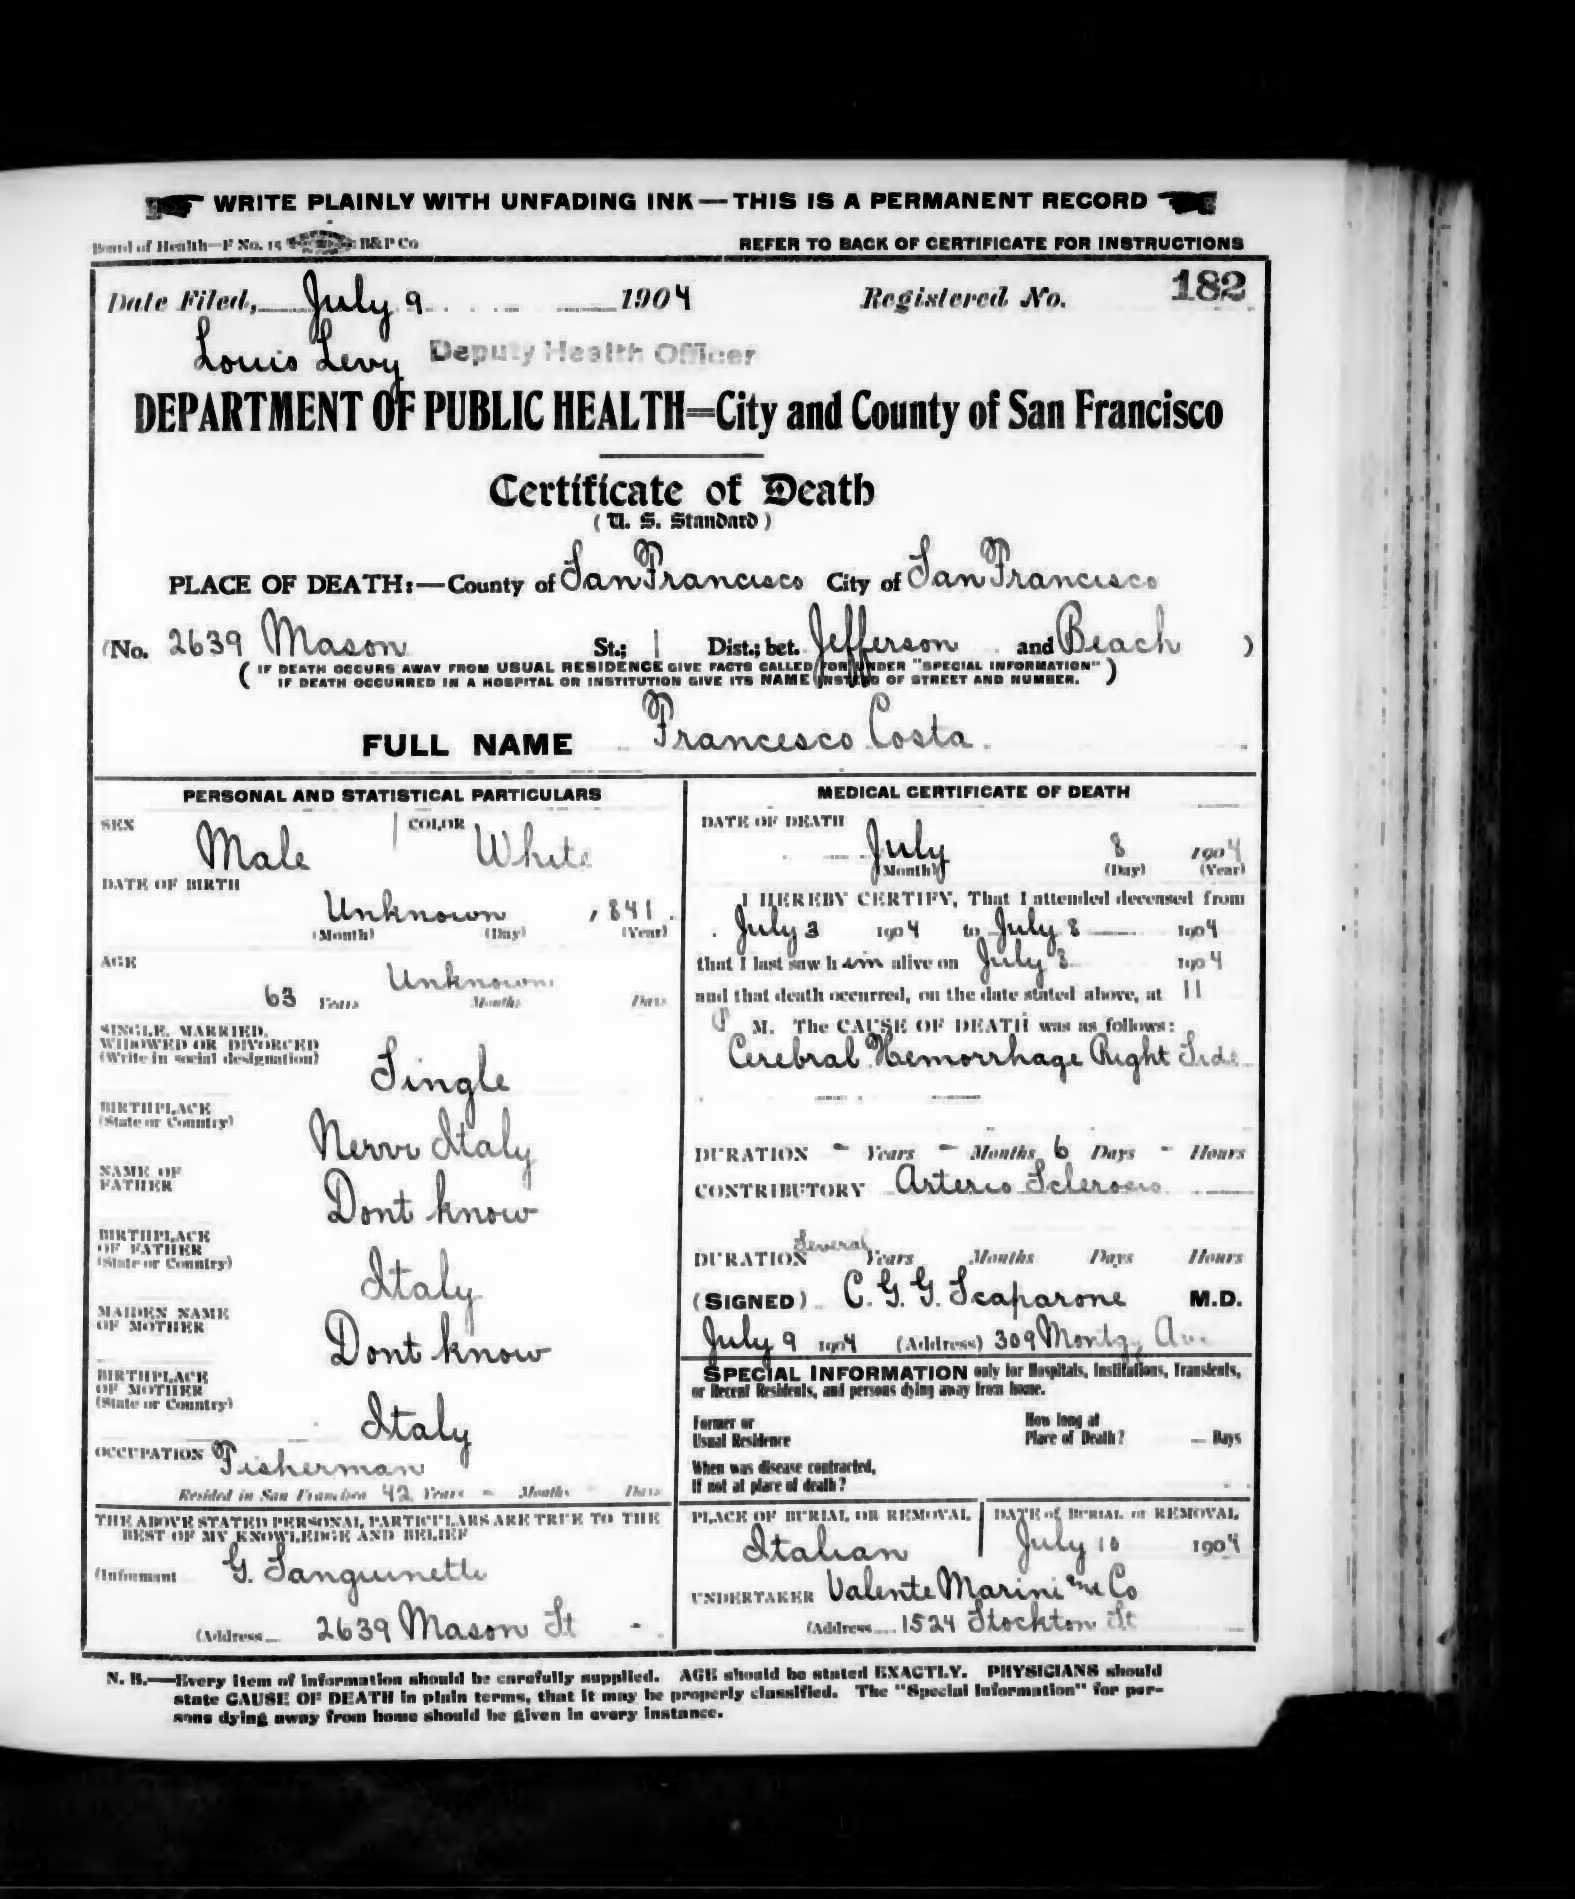 WRITE PLAINLY WITH UNFADING INK—THIS IS A PERMANENT RECORD
Board of Health—F No. 15 B&P Co
REFER TO BACK OF CERTIFICATE FOR INSTRUCTIONS
Date Filed, July 9 1904 Registered No. 182
Louis Levy Deputy Health Officer
DEPARTMENT OF PUBLIC HEALTH=City and County of San Francisco
Certificate of Death
(U. S. Standard)
PLACE OF DEATH:—County of San Francisco City of San Francisco
(No. 2639 Mason St.; 1 Dist.; bet. Jefferson and Beach )
( IF DEATH OCCURS AWAY FROM USUAL RESIDENCE GIVE FACTS CALLED FOR UNDER "SPECIAL INFORMATION"
IF DEATH OCCURRED IN A HOSPITAL OR INSTITUTION GIVE ITS NAME INSTEAD OF STREET AND NUMBER. )
FULL NAME Francesco Costa
PERSONAL AND STATISTICAL PARTICULARS
SEX Male COLOR White
DATE OF BIRTH
Unknown , 841
(Month) (Day) (Year)
AGE
63 Years Unknown Months Days
SINGLE, MARRIED,
WIDOWED OR DIVORCED
(Write in social designation)
Single
BIRTHPLACE
(State or Country)
Nervi Italy
NAME OF
FATHER
Dont know
BIRTHPLACE
OF FATHER
(State or Country)
Italy
MAIDEN NAME
OF MOTHER
Dont know
BIRTHPLACE
OF MOTHER
(State or Country)
Italy
OCCUPATION Fisherman
Resided in San Francisco 42 Years - Months - Days
THE ABOVE STATED PERSONAL PARTICULARS ARE TRUE TO THE
BEST OF MY KNOWLEDGE AND BELIEF
(Informant G. Sanguinetti
(Address 2639 Mason St
MEDICAL CERTIFICATE OF DEATH
DATE OF DEATH
July 8 1904
(Month) (Day) (Year)
I HEREBY CERTIFY, That I attended deceased from
July 3 1904 to July 8 1904
that I last saw h im alive on July 8 1904
and that death occurred, on the date stated above, at 11
P M. The CAUSE OF DEATH was as follows:
Cerebral Hemorrhage Right Side
DURATION - Years - Months 6 Days - Hours
CONTRIBUTORY Arterio Sclerosis
DURATION Several Years Months Days Hours
(SIGNED) C. G. G. Scaparone M.D.
July 9 1904 (Address) 309 Montgy Ave
SPECIAL INFORMATION only for Hospitals, Institutions, Transients,
or Recent Residents, and persons dying away from home.
Former or
Usual Residence
How long at
Place of Death? Days
When was disease contracted,
If not at place of death?
PLACE OF BURIAL OR REMOVAL
Italian
DATE of BURIAL or REMOVAL
July 10 1904
UNDERTAKER Valente Marini and Co
(Address 1524 Stockton St
N. B.—Every item of information should be carefully supplied. AGE should be stated EXACTLY. PHYSICIANS should
state CAUSE OF DEATH in plain terms, that it may be properly classified. The "Special Information" for per-
sons dying away from home should be given in every instance.